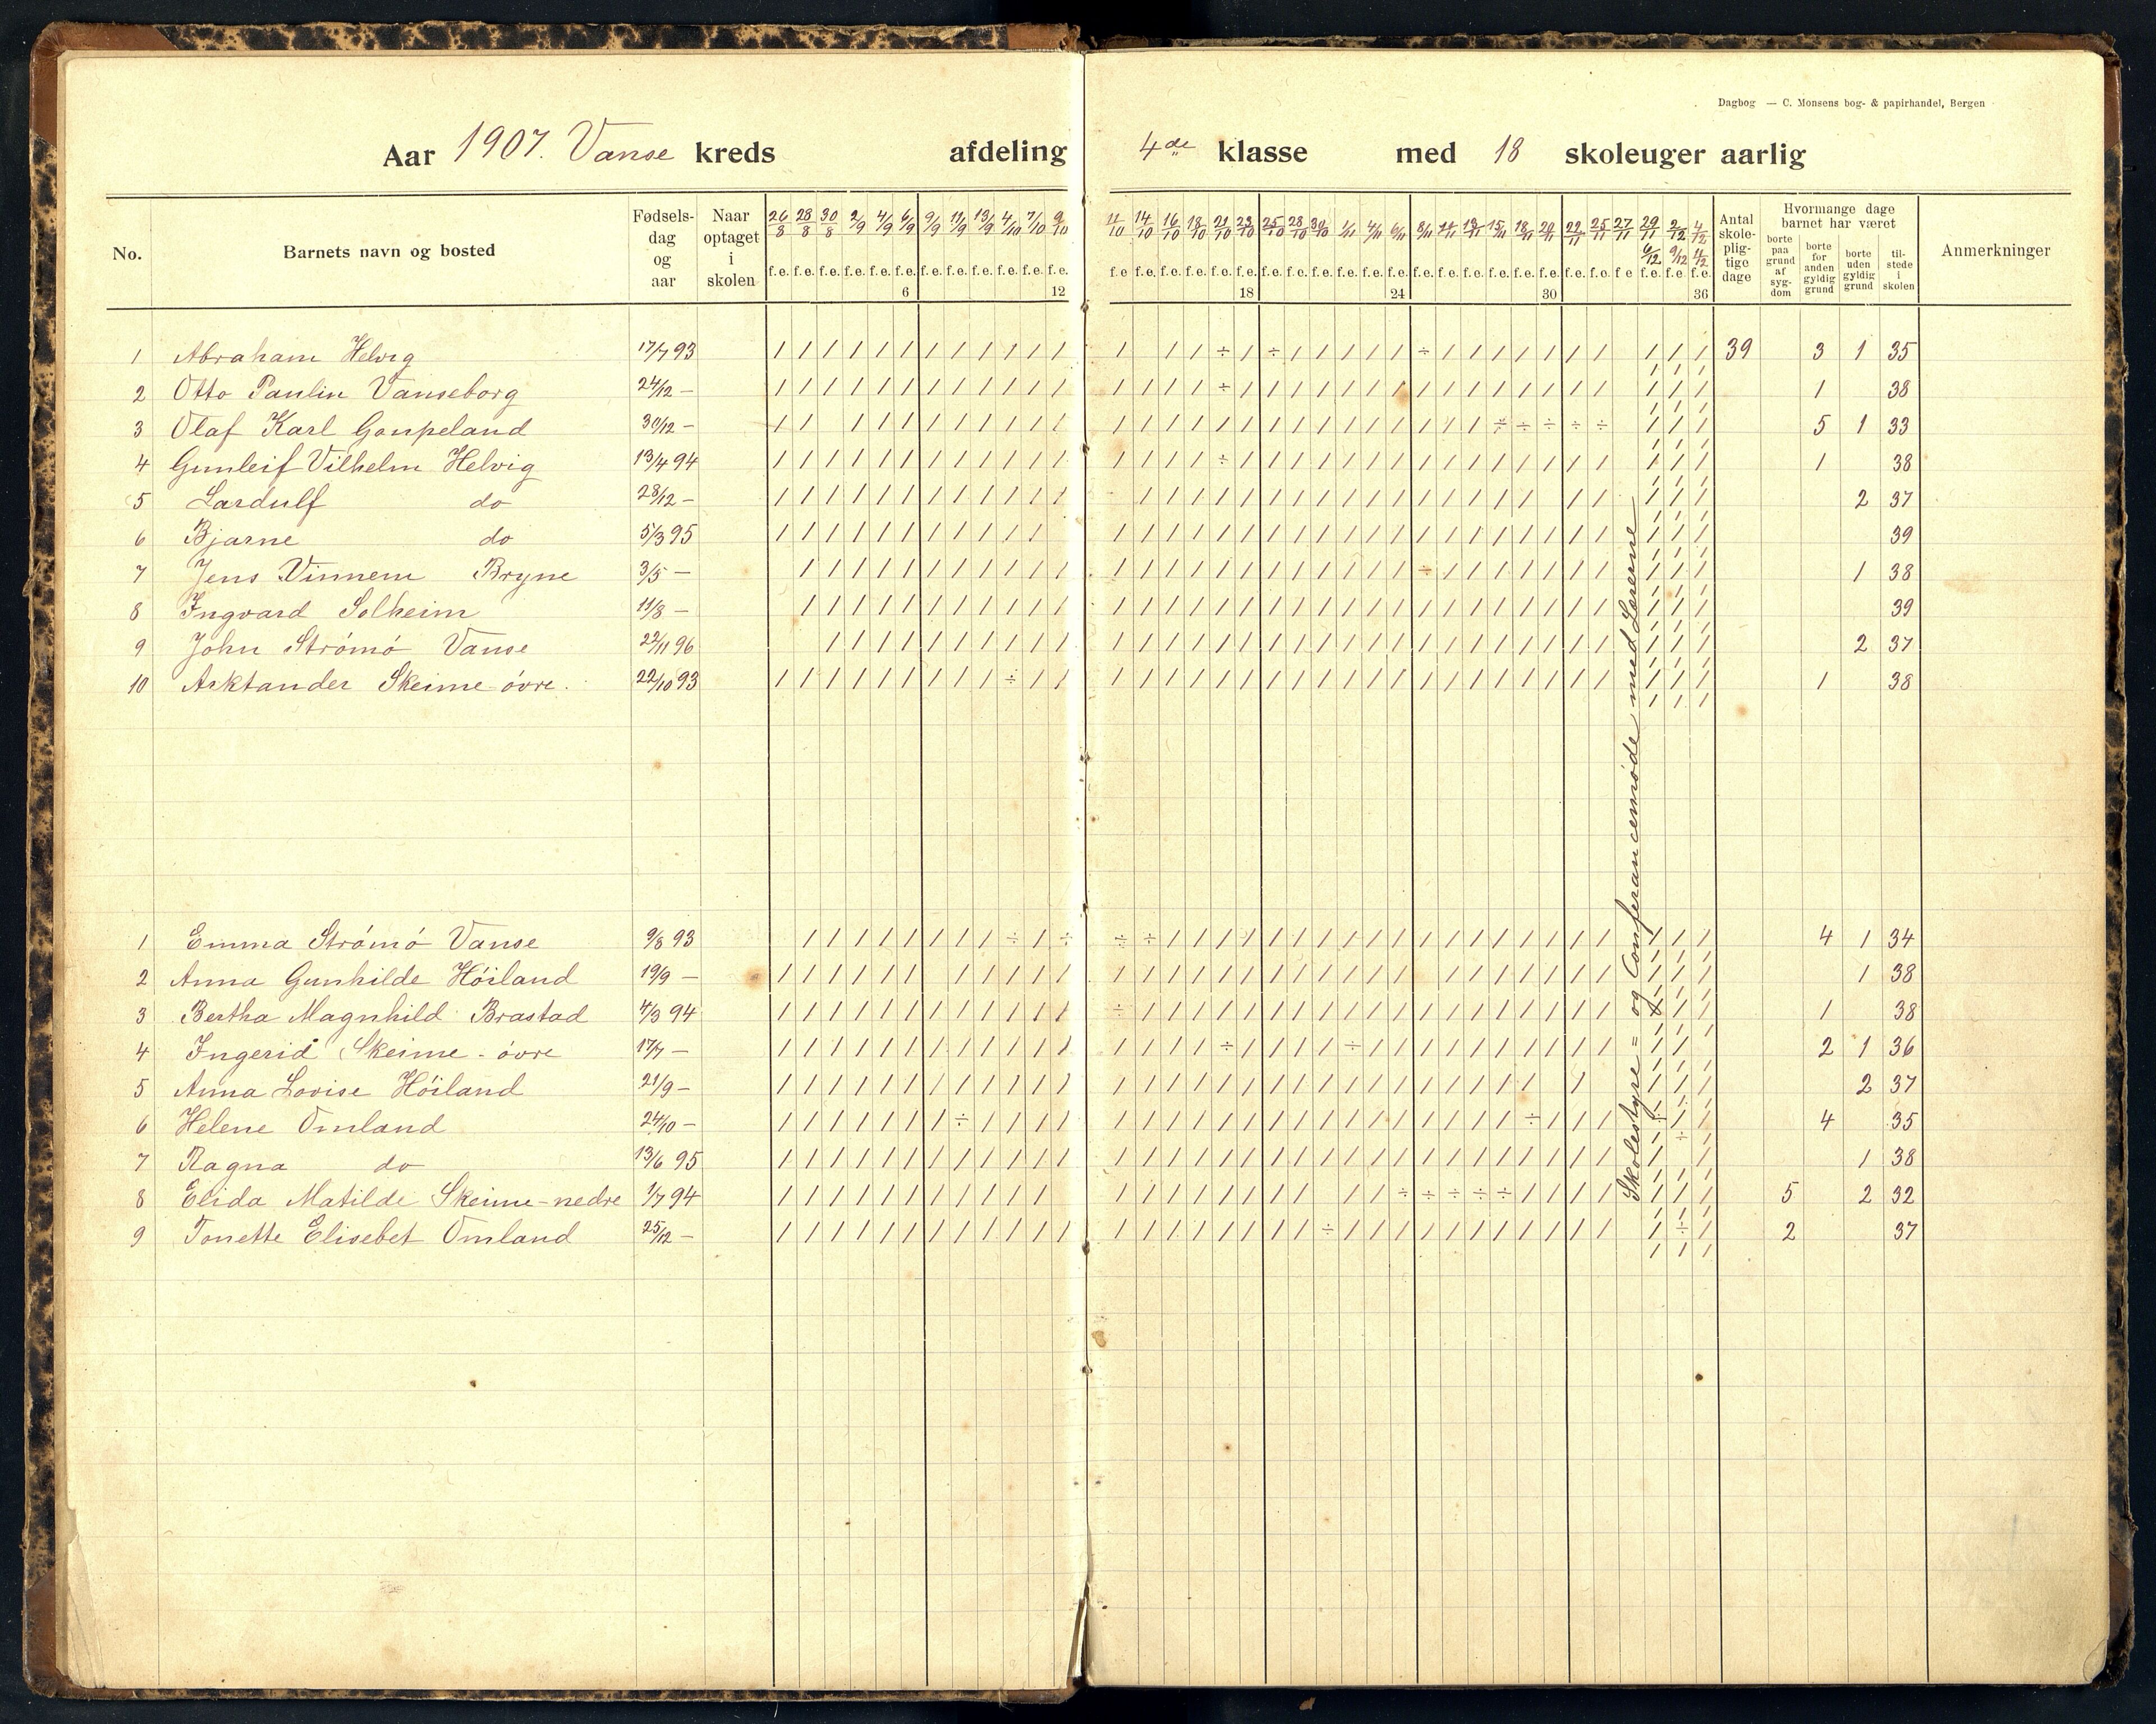 Dagbog — C. Monsens bog- & papirhandel, Bergen
Aar 1907. Vanse kreds afdeling 4de klasse med 18 skoleuger aarlig
No. Barnets navn og bosted Fødselsdag og aar Naar optaget i skolen 26/8 28/8 30/8 2/9 4/9 6/9 9/9 11/9 13/9 4/10 7/10 9/10 11/10 14/10 16/10 18/10 21/10 23/10 25/10 28/10 30/10 1/11 4/11 6/11 8/11 11/11 13/11 15/11 18/11 20/11 22/11 25/11 27/11 29/11 2/12 4/12 Antal skolepligtige dage Hvormange dage barnet har været Anmerkninger
6/12 9/12 11/12 borte paa grund af sygdom borte for anden gyldig grund borte uden gyldig grund tilstede i skolen
f. e. f. e. f. e. f. e. f. e. f. e. f. e. f. e. f. e. f. e. f. e. f. e. f. e f. e. f. e. f. e. f. e. f. e. f. e. f. e. f. e. f. e. f. e. f. e. f. e. f. e. f. e. f. e. f. e. f. e. f. e. f. e f e f. e. f. e f. e.
6 12 18 24 30 36
1 Abraham Helvig 17/7 93 39 3 1 35
2 Otto Paulin Vanseborg 24/12 - 1 38
3 Olaf Karl Gaupeland 30/12 - 5 1 33
4 Gunleif Vilhelm Helvig 13/4 94 1 38
5 Lardulf do 28/12 - 2 37
6 Bjarne do 5/3 95 39
7 Jens Vinnem Bryne 3/5 - 1 38
8 Ingvard Solheim 11/8 - 39
9 John Strömö Vanse 22/11 96 2 37
10 Arktander Skeime-övre. 22/10 93 1 38
Skolestyre = og Conferancemöde med Lærerne
1 Emma Strömö Vanse 9/8 93 4 1 34
2 Anna Gunhilde Höiland 19/9 - 1 38
3 Bertha Magnhild Brastad 4/3 94 1 38
4 Ingerid Skeime - övre 17/7 - 2 1 36
5 Anna Lovise Höiland 21/9 - 2 37
6 Helene Omland 24/10 - 4 35
7 Ragna do 13/6 95 1 38
8 Elida Matilde Skeime-nedre 1/7 94 5 2 32
9 Tonette Elisebet Omland 25/12 - 2 37